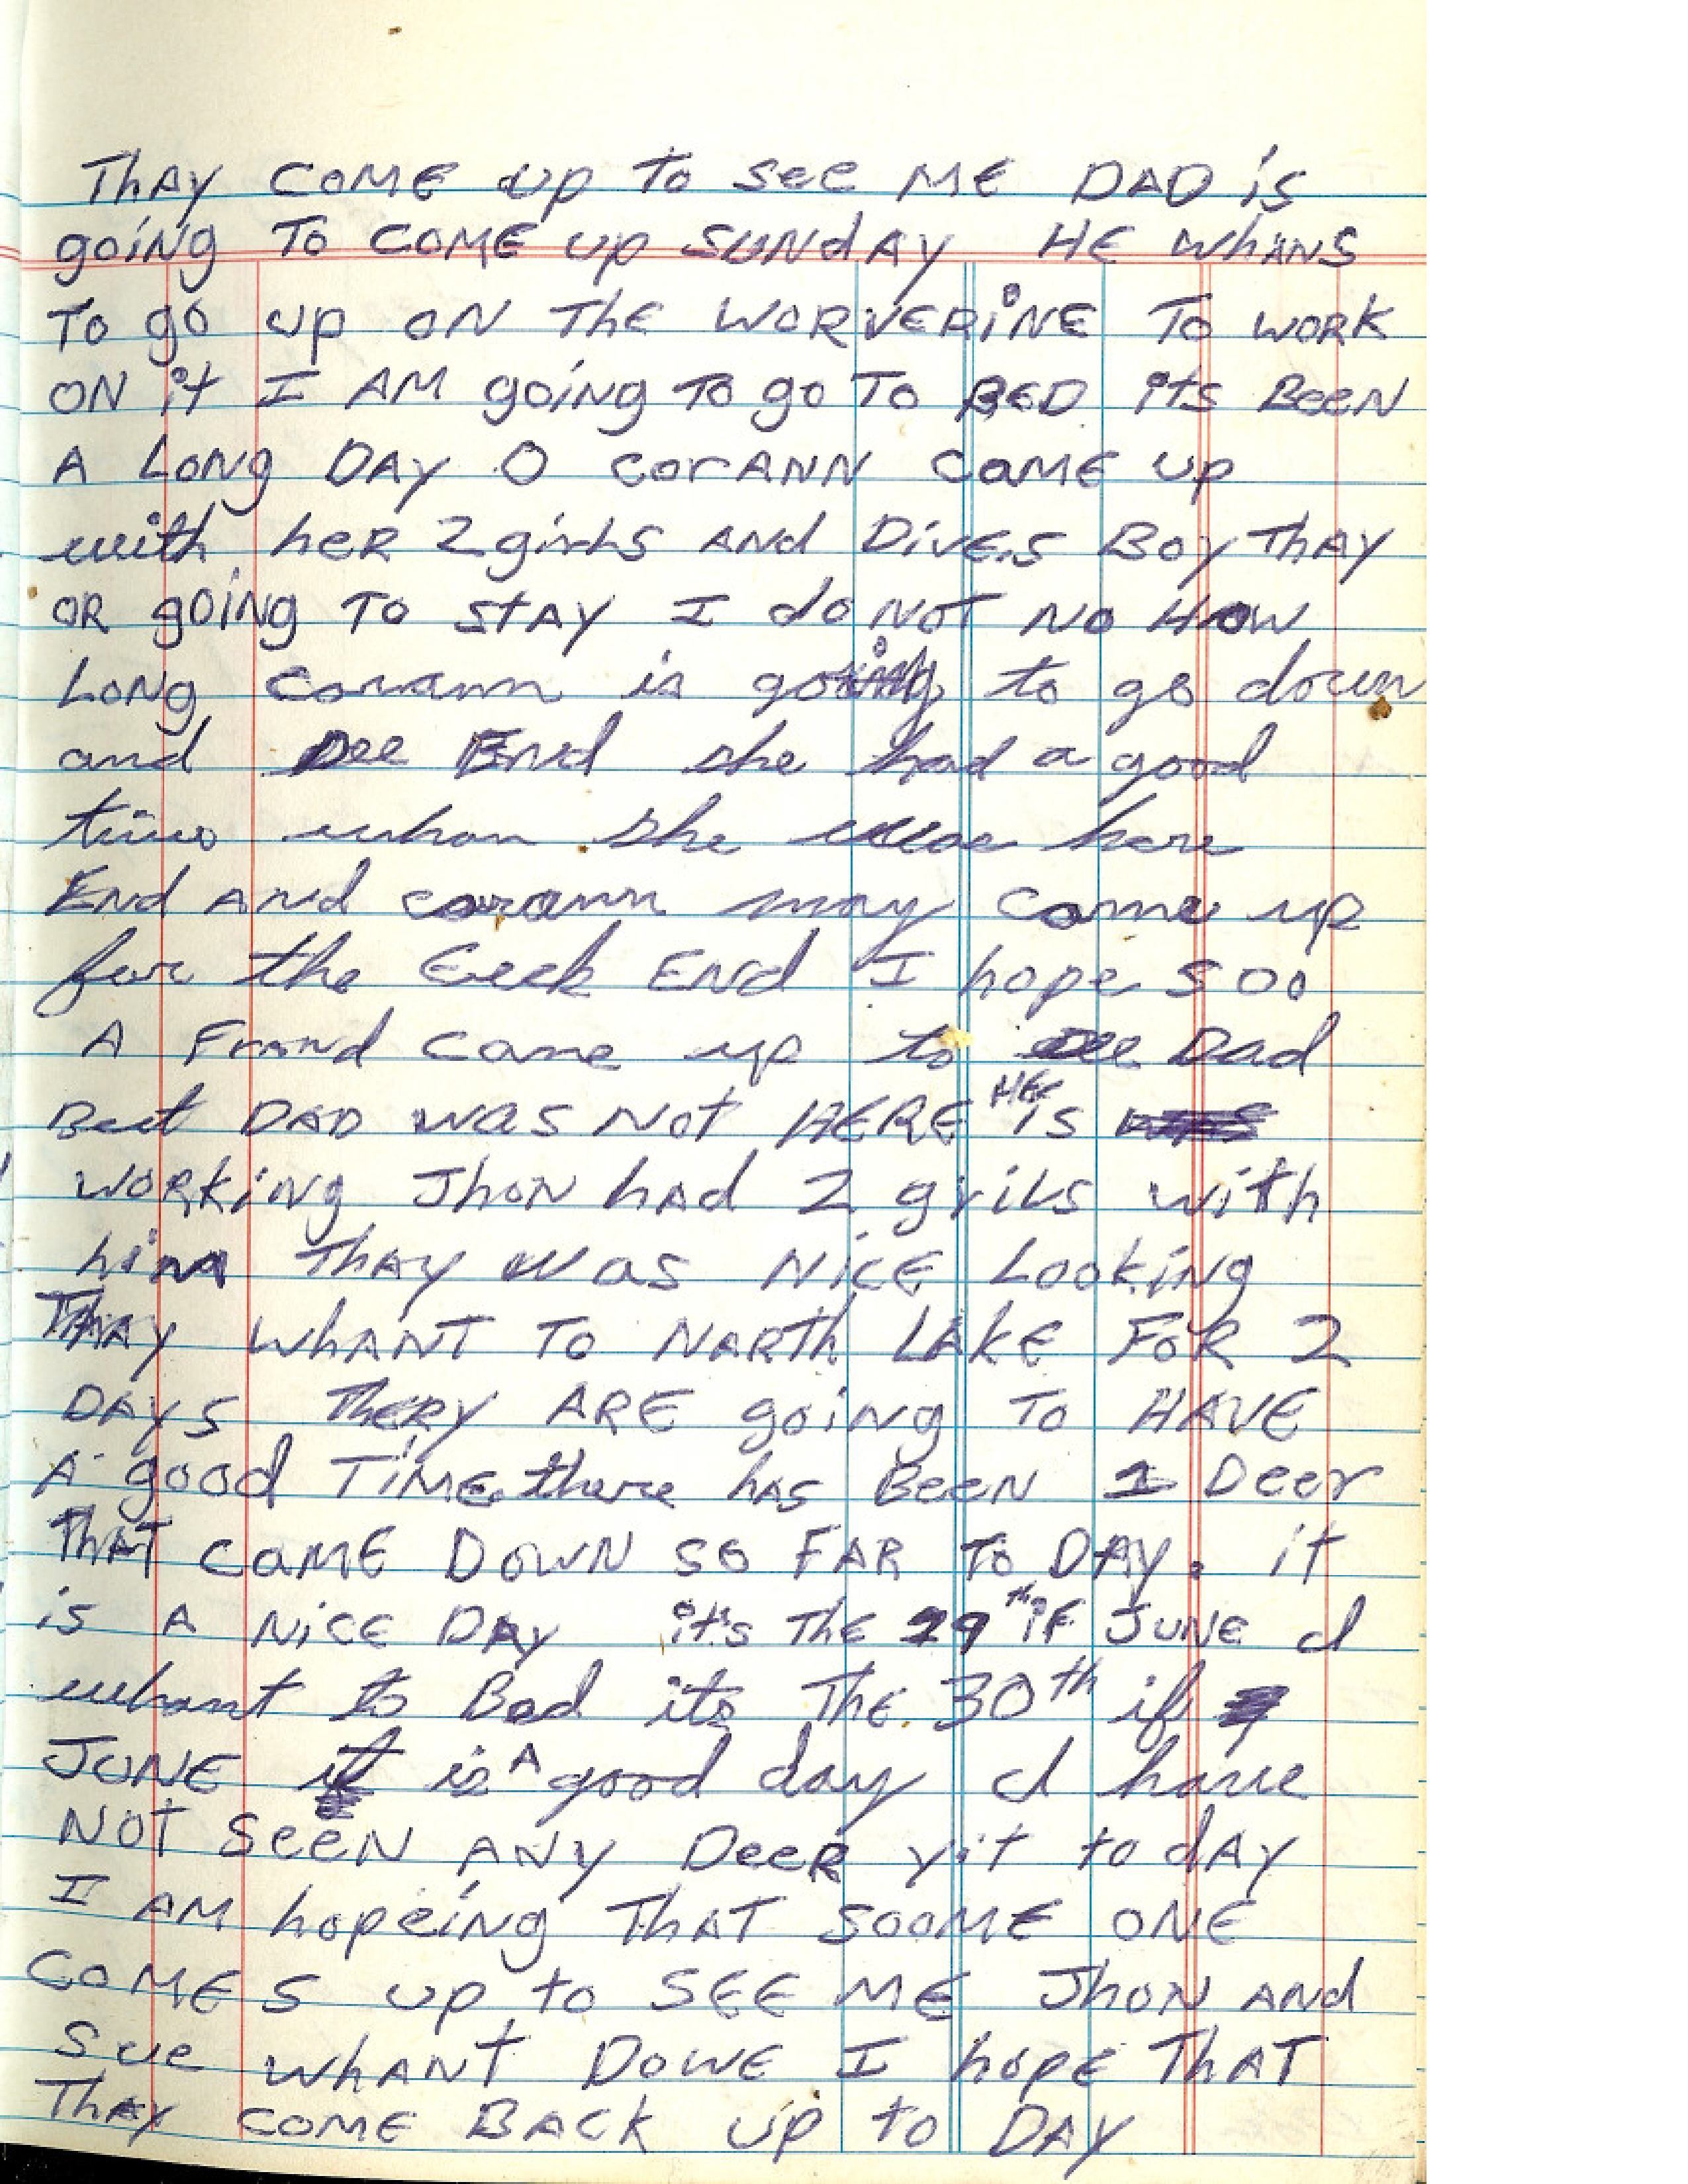 ThAY COME up To see ME DAD is
going To COME up SUNdAY HE WhANS
To go up ON The WORVERiNE To WORK
ON it I AM going To go To BED its BeeN
A LoNg DAY O corANN CAME up
with heR 2 girls ANd DivE's BoY ThAY
OR goiNg To StAY I do NOT NO HOW
LoNg corann is going to go down
and see End she had a good
time whan she was here
End ANd corann may come up
for the Eeek ENd I hope soo
A Frand came up to see Dad
But DAD was Not HERE HE is
WORKiNg JhoN hAd 2 grils with
him ThAY was NicE LookiNg
ThAY WhANT To NARTh LAkE FoR 2
DAYS TheRY ARE goiNg To HAVE
A good TiME there hAs BeeN 1 Deer
ThAT CAME DowN so FAR To DAY. iT
is A NicE DAY it's The 29th iF JUNE I
whant to Bed its The 30th if
JUNE it is A good day I have
NOT seeN ANY DeeR yit to dAY
I AM hopeiNg ThAT SOOME ONE
COMES up to SEE ME JhoN ANd
Sue whANT DoWE I hopE ThAT
ThAY COME BACK up to DAY